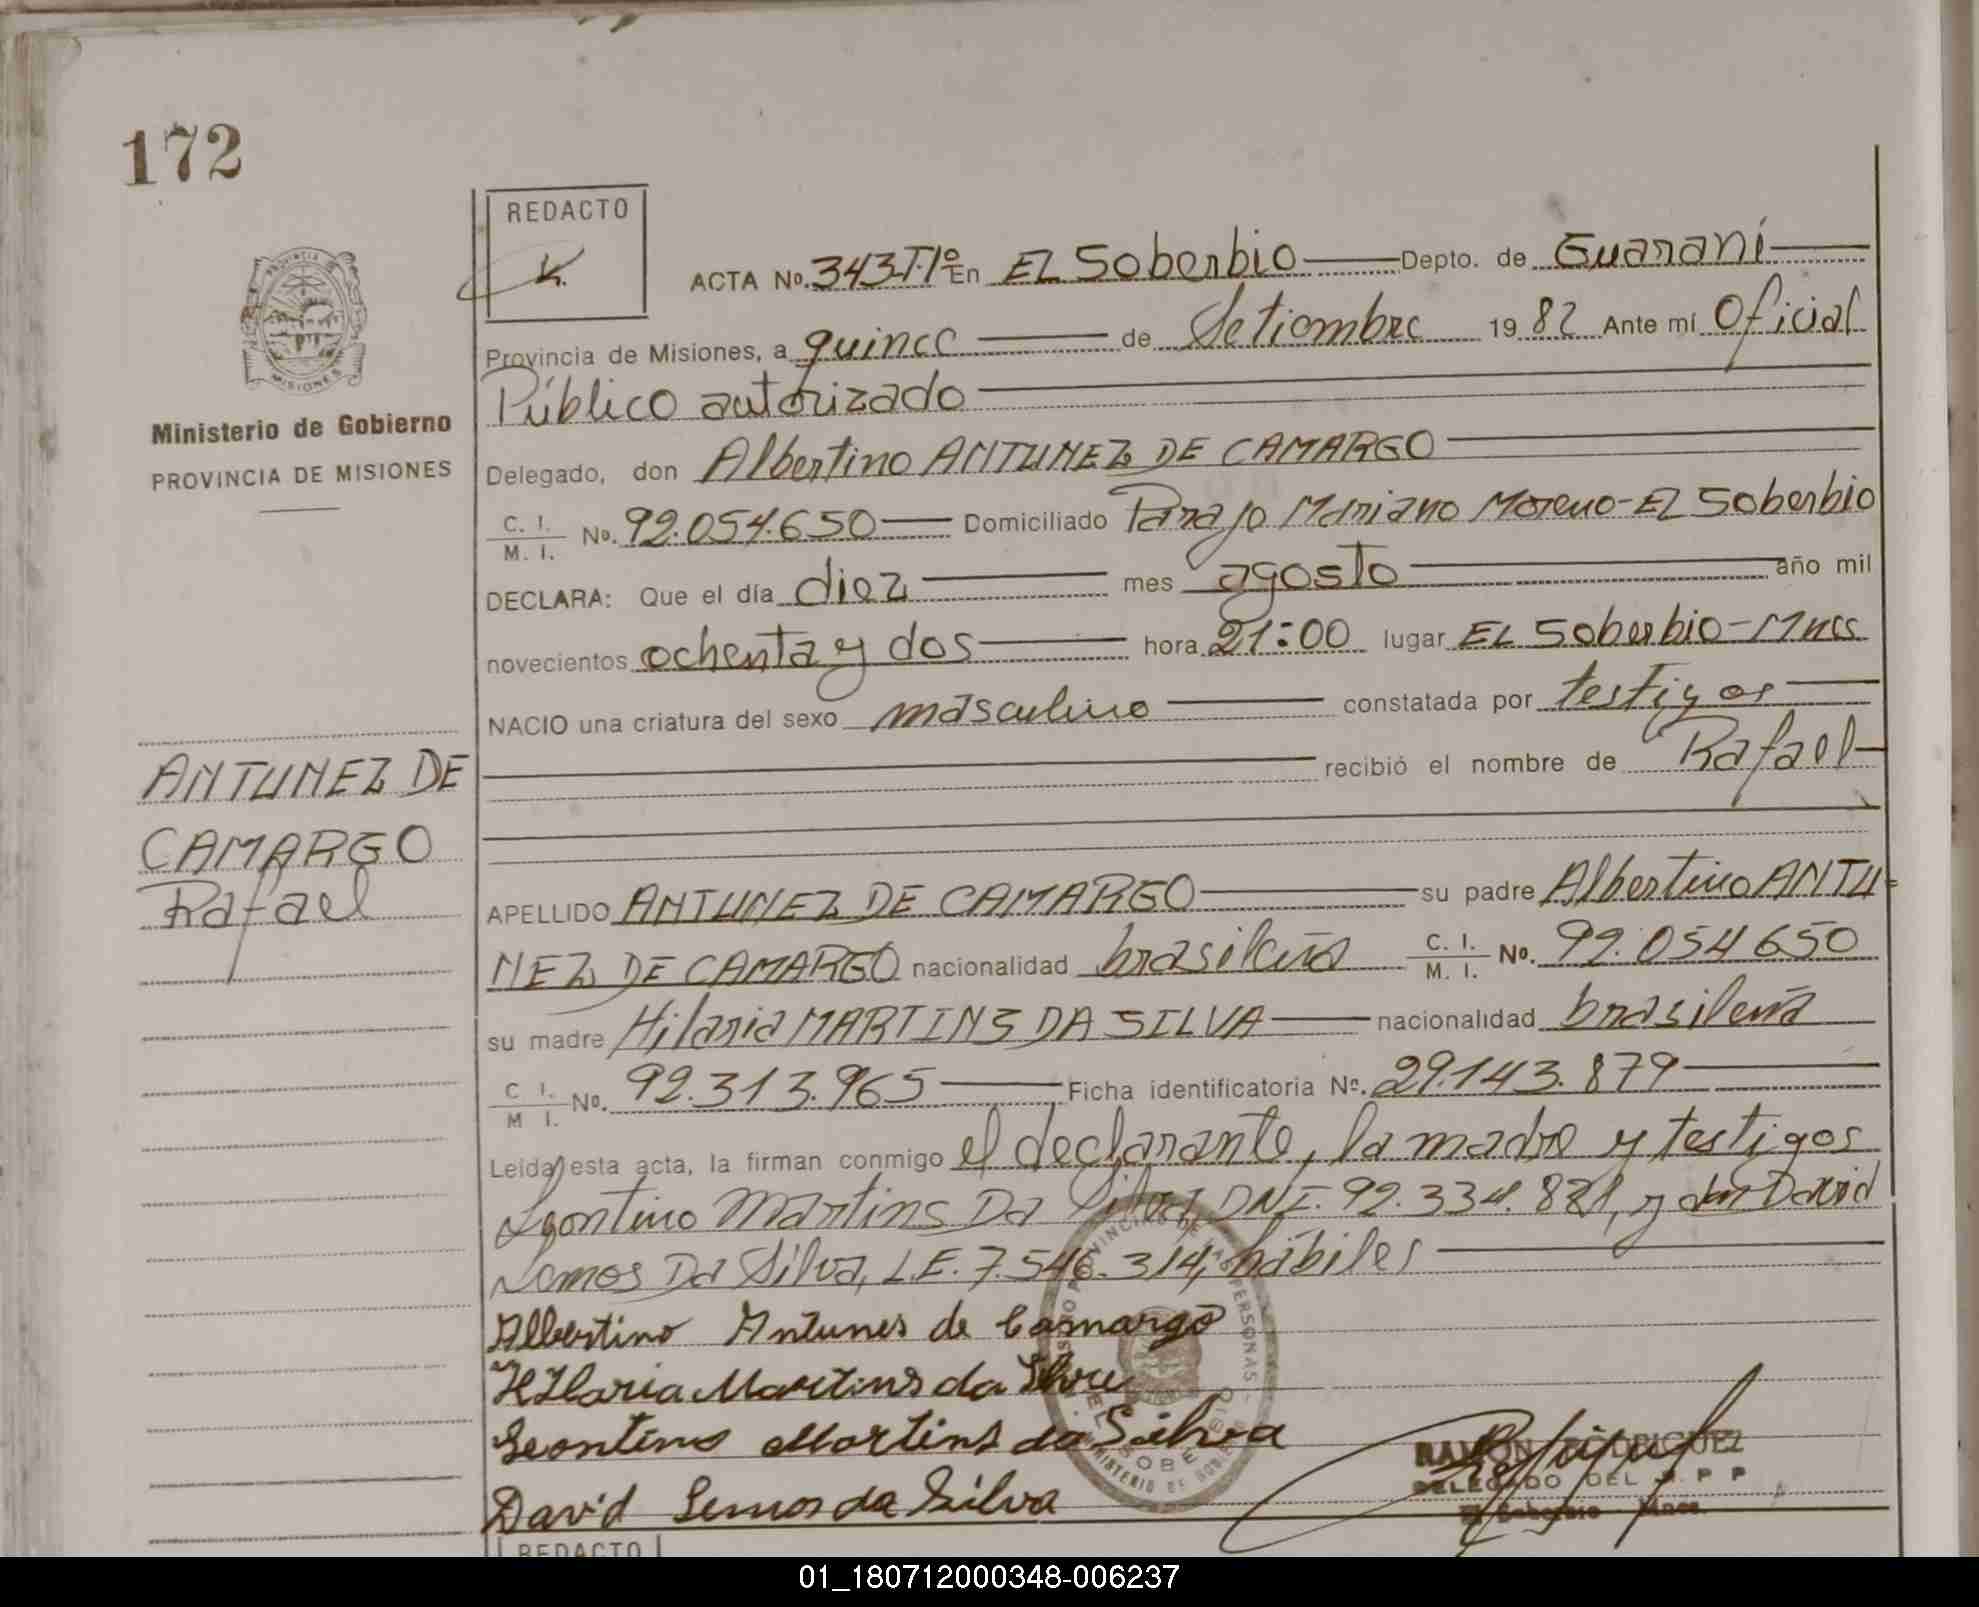 172
REDACTO
ACTA No. 343 Tº1º En EL Soberbio Depto. de Guaraní
Provincia de Misiones, a quince de Setiembre 1982 Ante mí Oficial
Público autorizado
PROVINCIA DE
MISIONES
Ministerio de Gobierno
PROVINCIA DE MISIONES
Delegado, don Albertino ANTUNEZ DE CAMARGO
C. I.
M. I. No. 92.054.650 Domiciliado Paraje Mariano Moreno-EL Soberbio
DECLARA: Que el día diez mes agosto año mil
novecientos ochenta y dos hora 21:00 lugar EL Soberbio-Mnes
NACIO una criatura del sexo masculino constatada por testigos
recibió el nombre de Rafael
ANTUNEZ DE
CAMARGO
Rafael
APELLIDO ANTUNEZ DE CAMARGO su padre Albertino ANTU-
NEZ DE CAMARGO nacionalidad brasileña C. I.
M. I. No. 92.054650
su madre Hilaria MARTINS DA SILVA nacionalidad brasileña
C I.
M I. No. 92.313.965 Ficha identificatoria No. 29.143.879
Leida esta acta, la firman conmigo el declarante, la madre y testigos
Leontino Martins Da Silva, DNI. 92.334.821, y don David
Lemos Da Silva, L.E. 7.546.314, hábiles
Albertino Antunes de Camargo
HIlaria Martins da
Leontino Martins da Silva
David Lemos da Silva
RAMON RODRIGUEZ
DELEGADO DEL R. P P
El Soberbio Mnes.
REDACTO
01_180712000348-006237